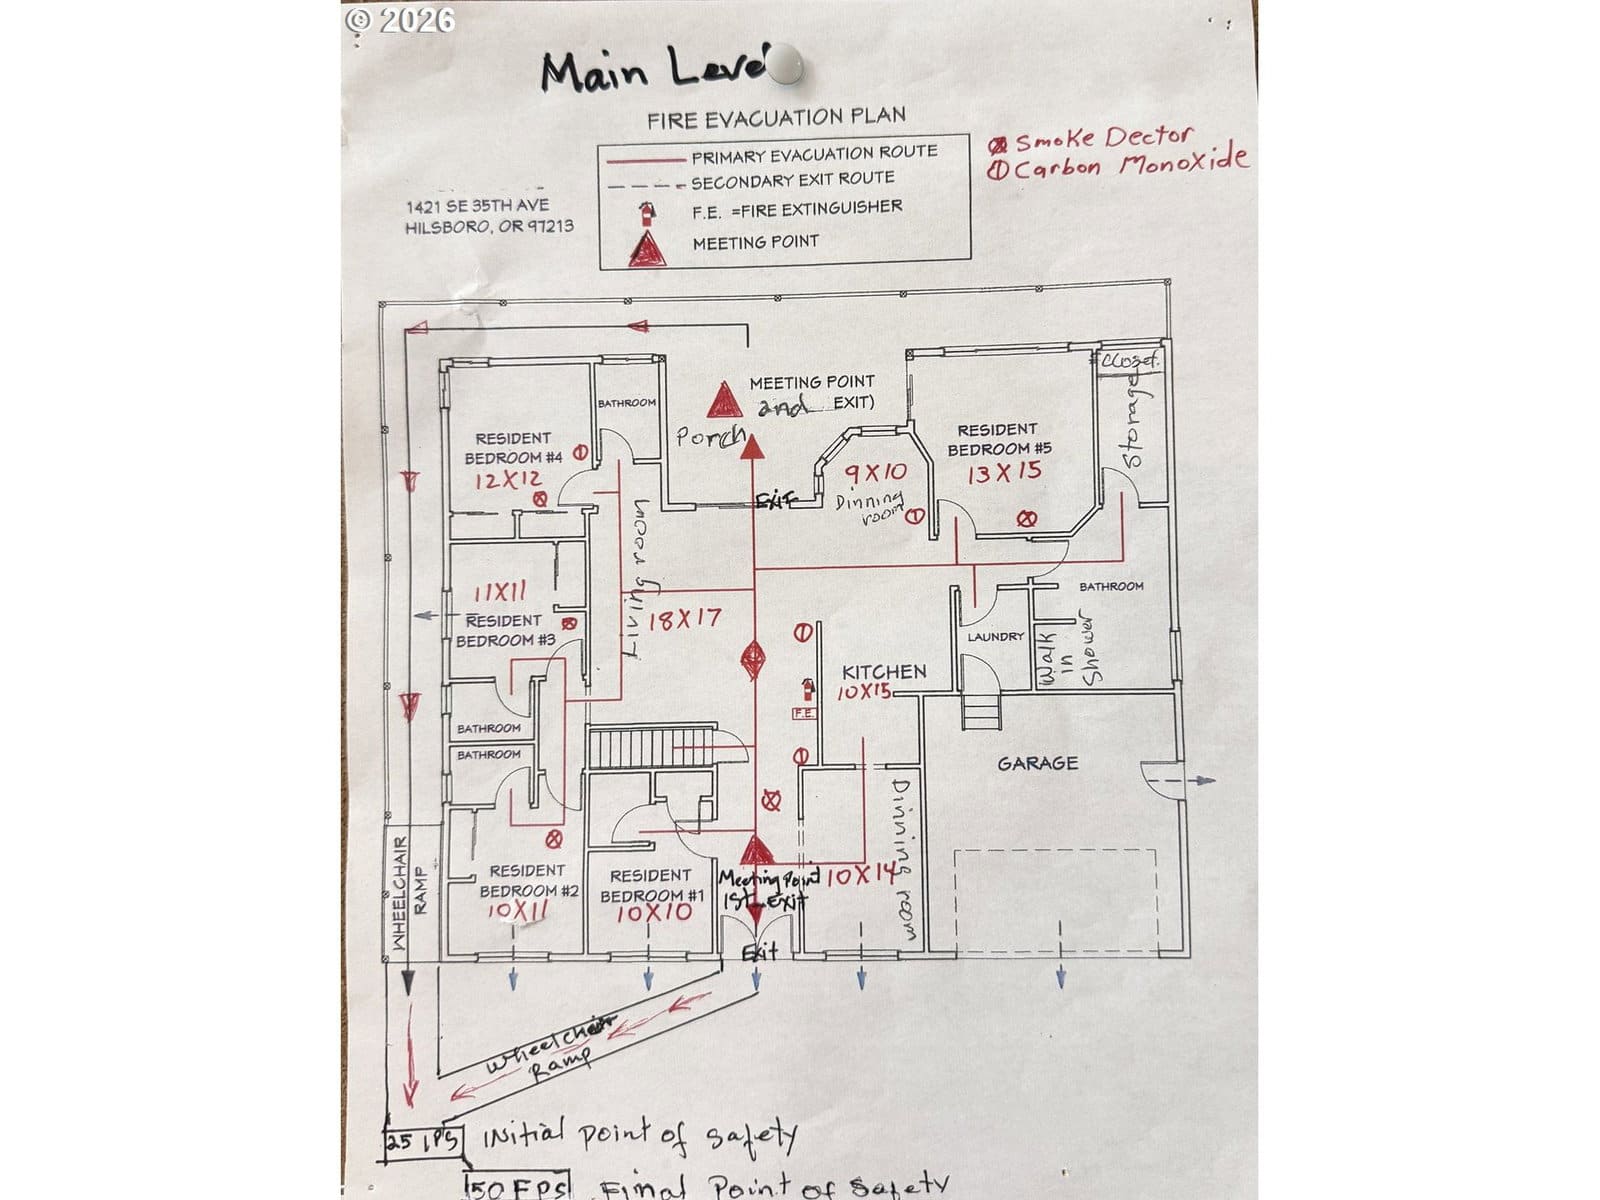 © 2026
Main Level
FIRE EVACUATION PLAN
PRIMARY EVACUATION ROUTE
SECONDARY EXIT ROUTE
F.E. =FIRE EXTINGUISHER
MEETING POINT
Smoke Dector
Carbon Monoxide
1421 SE 35TH AVE
HILSBORO, OR 97213
Closet
Storage
BATHROOM
MEETING POINT
and EXIT)
Porch
RESIDENT
BEDROOM #4
12X12
RESIDENT
BEDROOM #5
13X15
9X10
Dinning
room
Exit
Living room
11X11
RESIDENT
BEDROOM #3
18X17
BATHROOM
LAUNDRY
Walk
in
Shower
KITCHEN
10X15
F.E.
BATHROOM
BATHROOM
GARAGE
Dinning room
WHEELCHAIR
RAMP
RESIDENT
BEDROOM #2
10X11
RESIDENT
BEDROOM #1
10X10
Meeting Point
1St Exit
10X14
Exit
Wheelchair
Ramp
25 IPS Initial point of safety
50 FPS Final Point of Safety